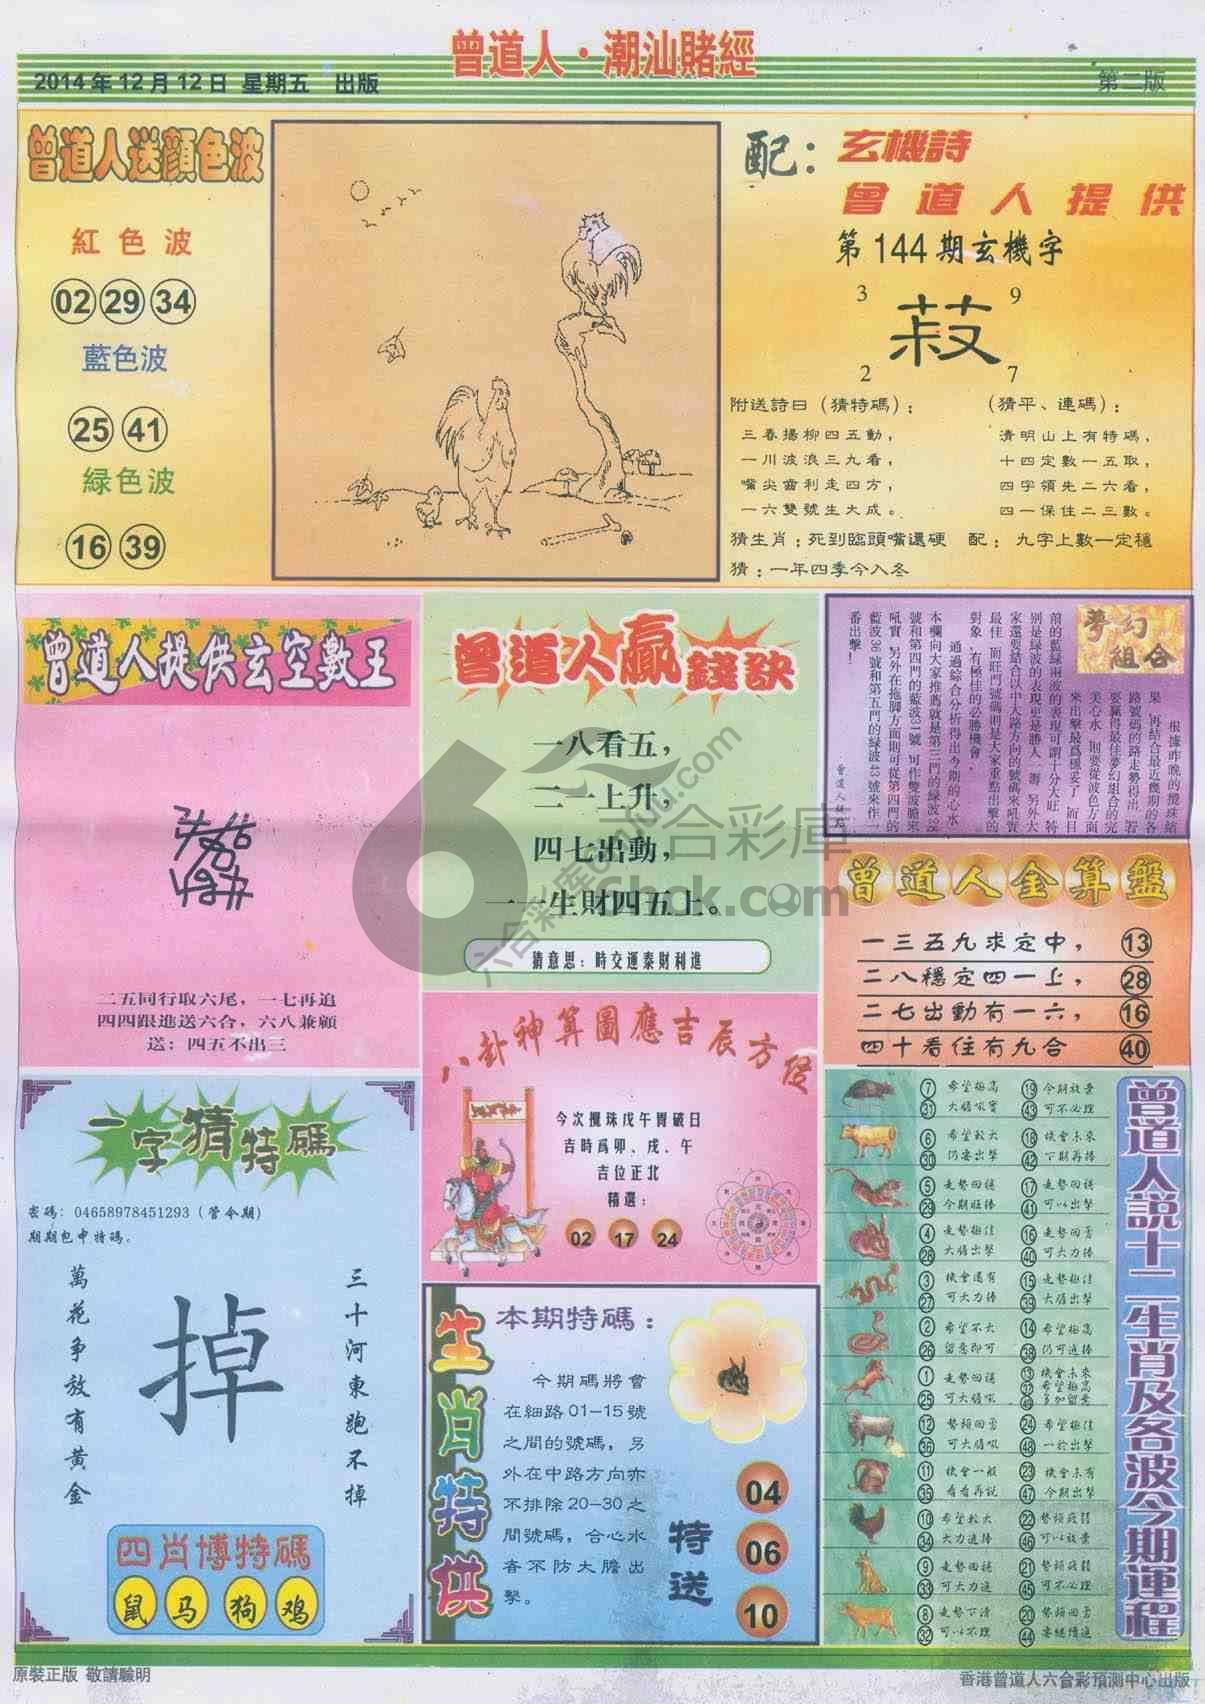 曾道人·潮汕賭經
2014年12月12日 星期五 出版
第二版
曾道人送顔色波
紅色波
02 29 34
藍色波
25 41
緑色波
16 39
配：
玄機詩
曾道人提供
第144期玄機字
3 9
2 7
附送詩曰（猜特碼）：
三春楊柳四五動，
一川波浪三九看，
嘴尖齒利走四方，
一六雙號生大成。
（猜平、連碼）：
清明山上有特碼，
十四定數一五取，
四字領先二六看，
四一保住二三數。
猜生肖：死到臨頭嘴還硬 配： 九字上數一定穩
猜：一年四季今入冬
曾道人提供玄空數王
二五同行取六尾，一七再追
四四跟進送六合，六八兼顧
送：四五不出三
曾道人贏錢訣
一八看五，
二一上升，
四七出動，
一一生財四五上。
猜意思：時交運泰財利進
夢幻
組合
根據昨晚的攪珠結
果，再結合最近幾期的各
路號碼的路走勢得出，若
要贏得最佳夢幻組合的完
美心水，則要從波色方面
來出擊最爲穩妥了，而目
前的藍緑兩波的表現可謂十分大旺，特
别是緑波的表現更是勝人一籌，另外大
家還要結合以中大路方向的號碼來吼實
最佳，而旺門號碼則是大家重點出擊的
對象，有極佳的必勝機會。
通過綜合分析得出今期的心水，
本欄向大家推薦就是第三門的緑波28
號和第四門的藍波31號，可作雙波膽來
吼實，另外在拖脚方面則可從第四門的
藍波36號和第五門的緑波43號來作一
番出擊！
曾道人金算盤
一三五九求定中， 13
二八穩定四一上， 28
二七出動有一六， 16
四十看住有九合 40
八卦神算圖應吉辰方位
今次攪珠戊午胃破日
吉時爲卯、戌、午
吉位正北
精選：
02 17 24
一字猜特碼
密碼：04658978451293（管令期）
期期包中特碼。
萬花争放有黄金
掉
三十河東跑不掉
四肖博特碼
鼠 马 狗 鸡
生肖特供
本期特碼：
今期碼將會
在細路01—15號
之間的號碼，另
外在中路方向亦
不排除20—30之
間號碼，合心水
者不防大膽出
擊。
特送
04
06
10
曾道人說十二生肖及各波今期運程
7 希望極高 19 今期放棄
31 大膽吼實 43 可不必理
6 希望較大 18 機會未來
30 仍要出擊 42 下期再捧
5 走勢回穩 17 走勢回穩
29 今期旺捧 41 可以出擊
4 走勢極佳 16 走勢回勇
28 大膽出擊 40 可大力捧
3 機會還有 15 走勢極佳
27 可大力捧 39 大膽出擊
2 希望不大 14 希望極高
26 留意即可 38 仍可追捧
1 走勢回穩 13 機會未來
25 可大膽吼 37 希望極高
49 多加留意
12 勢頭回勇 24 希望極佳
36 可大膽吼 48 一於出擊
11 機會一般 23 機會未有
35 看看再說 47 今期出擊
10 希望較大 22 勢頭疲弱
34 大力追捧 46 可以放棄
9 走勢回穩 21 勢頭疲弱
33 可大力追 45 可不必理
8 走勢下滑 20 勢頭回勇
32 可以不理 44 要繼續追
六合彩库
6hck.com
原裝正版 敬請驗明
香港曾道人六合彩預測中心出版